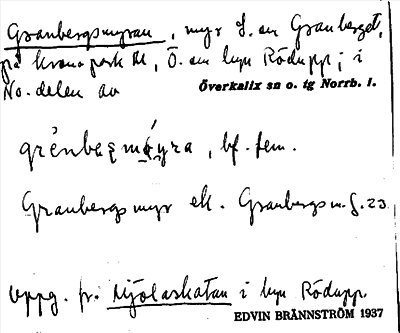 Granbergsmyran, myr S. om Granberget,
på kronopark III, Ö. om byn Rödupp; i
No. delen av Överkalix sn o. tg Norrb. l.
myra, bf. fem.
Granbergsmyr ek. Granbergsm. f. 23
Uppg. fr. Mjölaskatan i byn Rödupp
EDVIN BRÄNNSTRÖM 1937